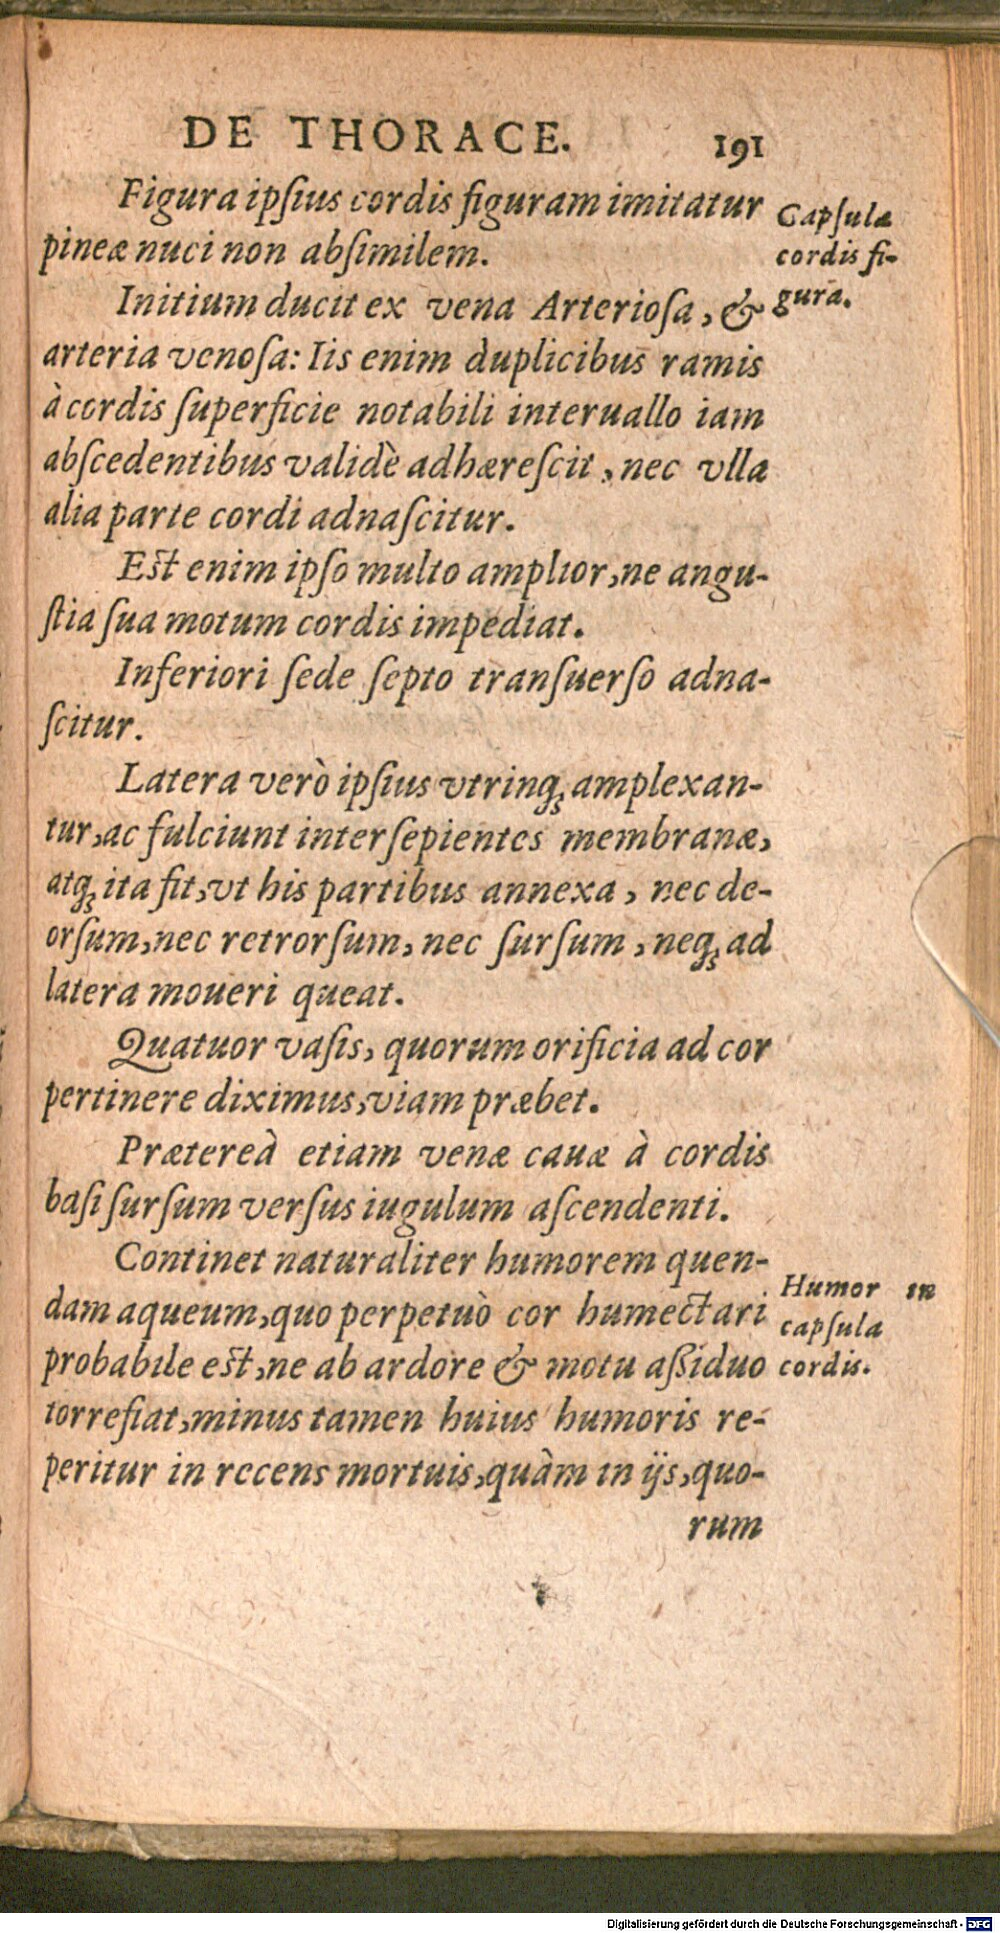 DE THORACE. 191
Figura ipſius cordis figuram imitatur
pineæ nuci non abſimilem.
Capſulæ
cordis fi-
gura.
Initium ducit ex vena Arterioſa, &
arteria venoſa: Iis enim duplicibus ramis
à cordis ſuperficie notabili interuallo iam
abſcedentibus validè adhæreſcit, nec vlla
alia parte cordi adnaſcitur.
Eſt enim ipſo multo amplior, ne angu-
ſtia ſua motum cordis impediat.
Inferiori ſede ſepto tranſuerſo adna-
ſcitur.
Latera verò ipſius vtrinq; amplexan-
tur, ac fulciunt interſepientes membranæ,
atq; ita fit, vt his partibus annexa, nec de-
orſum, nec retrorſum, nec ſurſum, neq; ad
latera moueri queat.
Quatuor vaſis, quorum orificia ad cor
pertinere diximus, viam præbet.
Prætereà etiam venæ cauæ à cordis
baſi ſurſum verſus iugulum aſcendenti.
Continet naturaliter humorem quen-
dam aqueum, quo perpetuò cor humectari
probabile eſt, ne ab ardore & motu aßiduo
torrefiat, minus tamen huius humoris re-
peritur in recens mortuis, quàm in ijs, quo-
rum
Humor in
capſula
cordis.
Digitalisierung gefördert durch die Deutsche Forschungsgemeinschaft - DFG